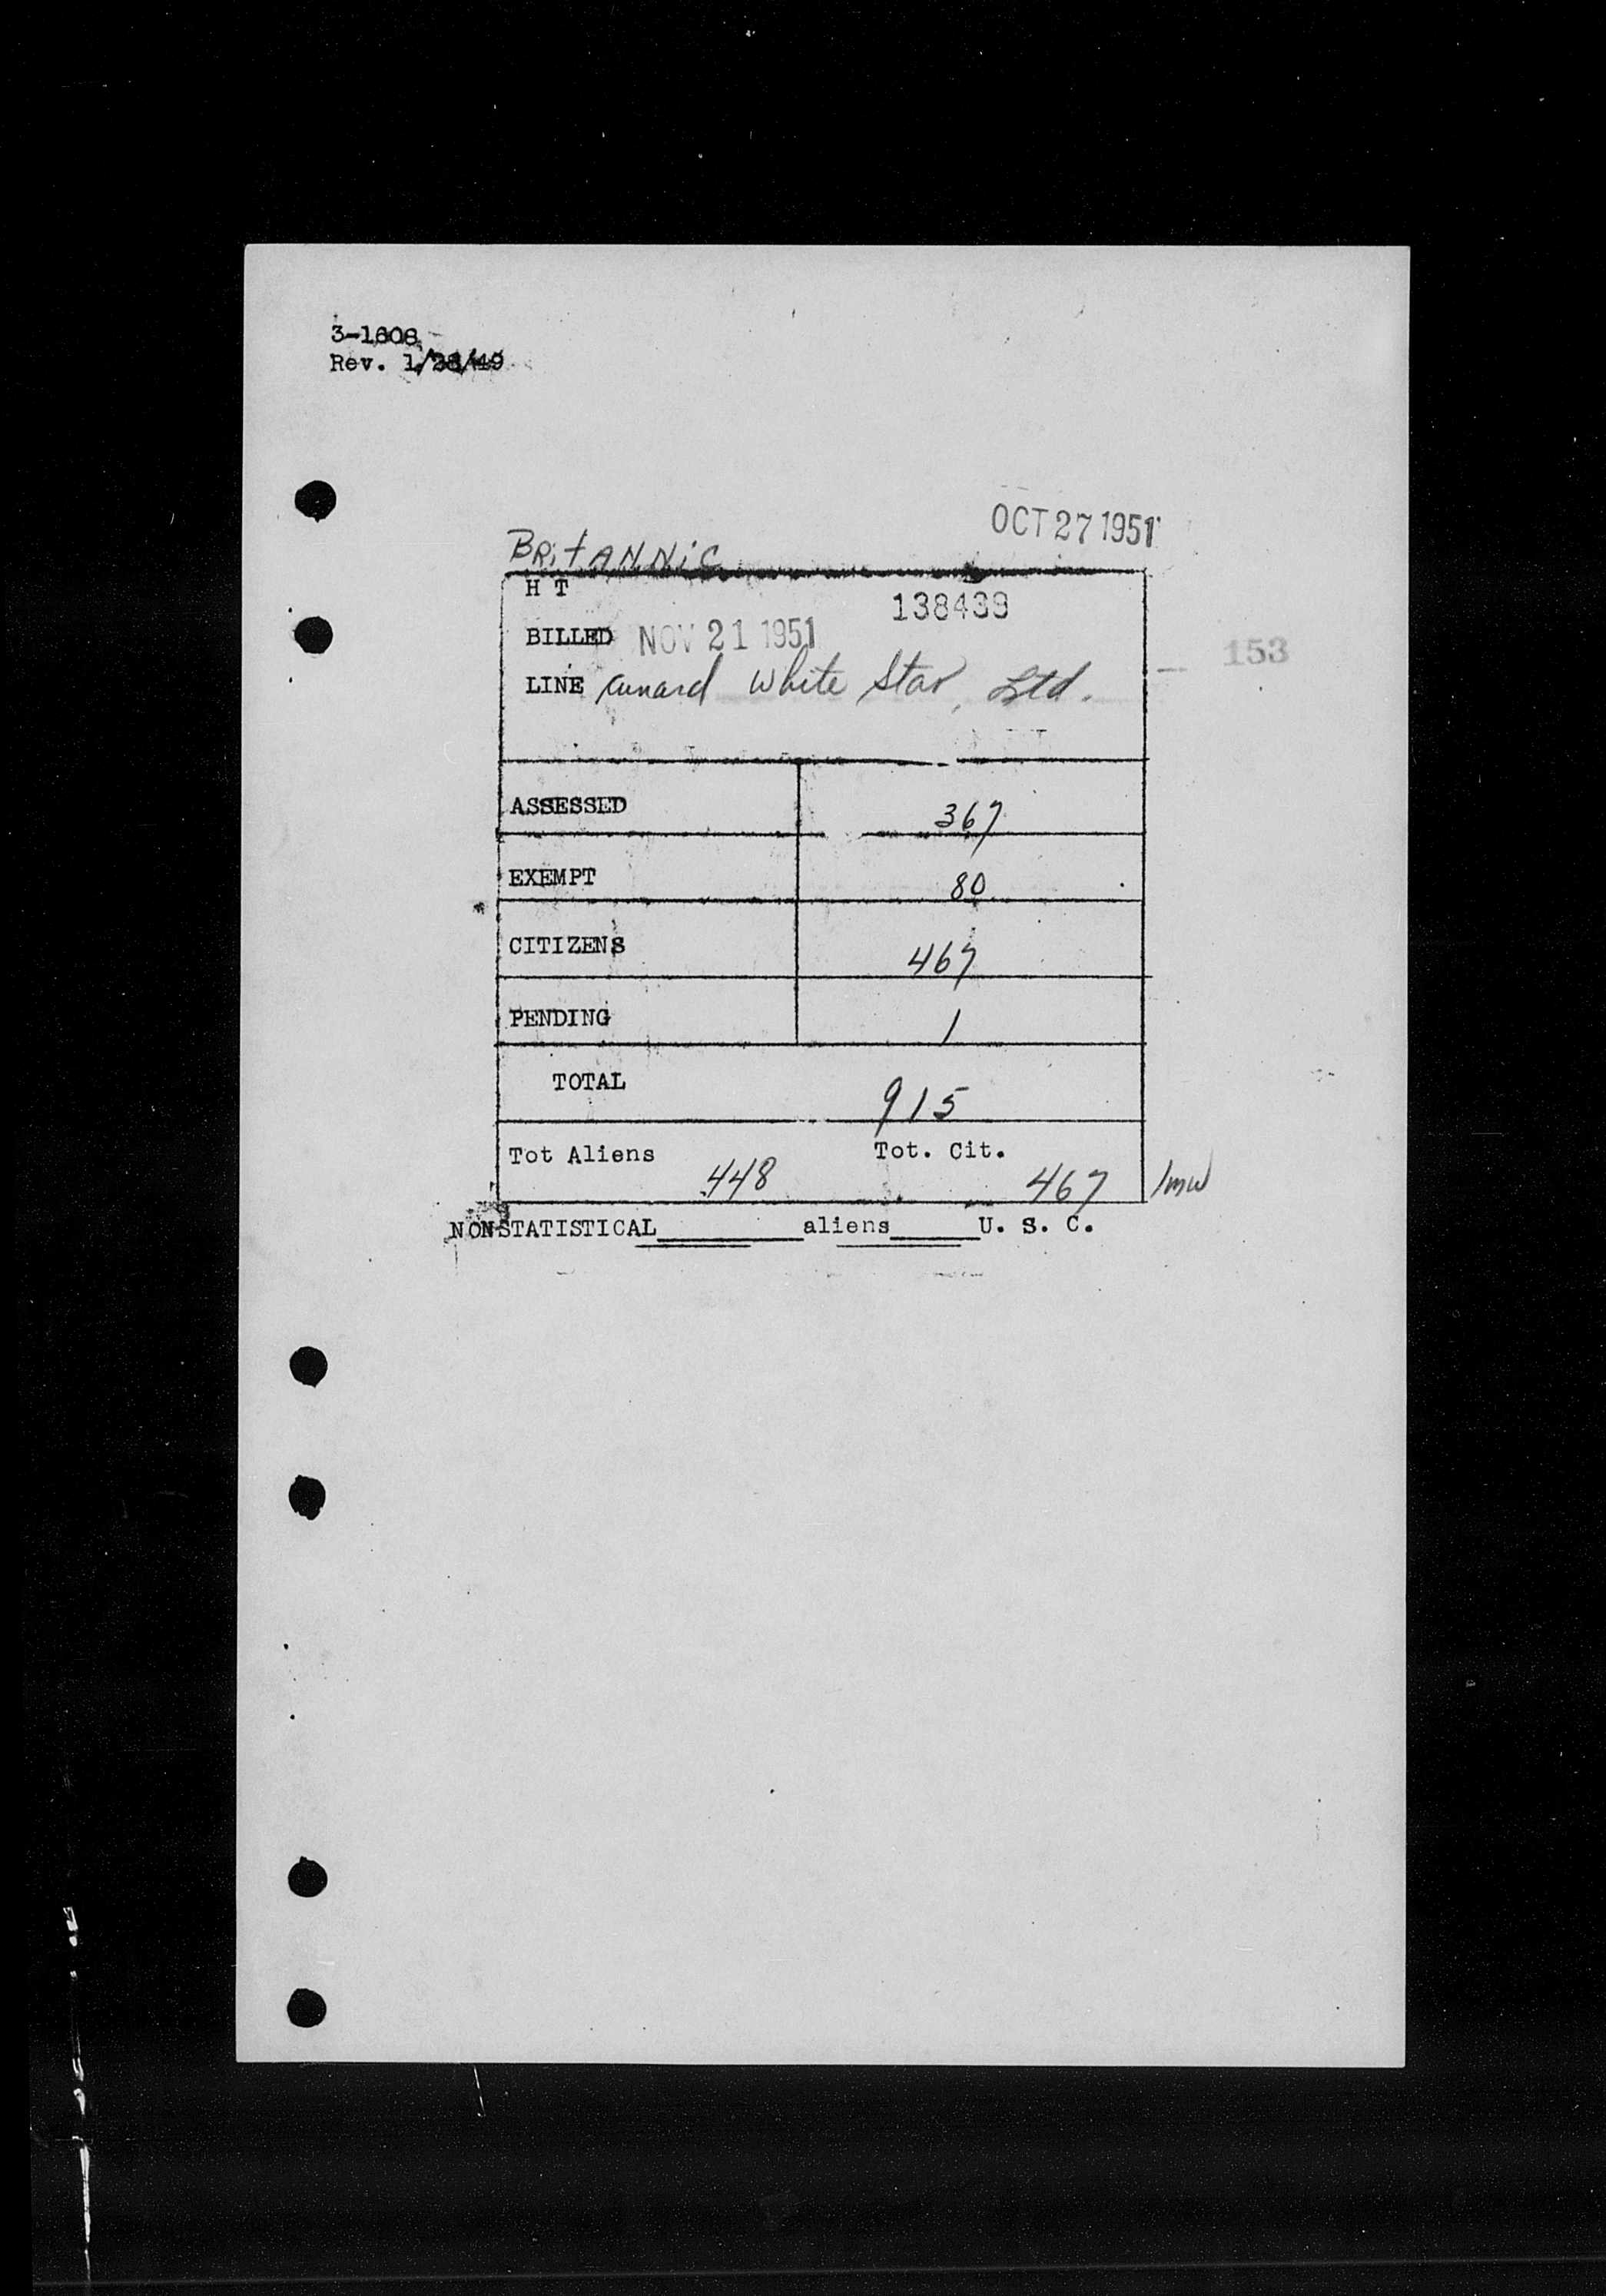 3-1608
Rev. 1/28/49
OCT 27 1951
BRitANNiC
H T
138433
BILLED NOV 21 1951
153
LINE Cunard White Star, Ltd.
ASSESSED 367
EXEMPT 80
CITIZENS 467
PENDING 1
TOTAL 915
Tot Aliens 448 Tot. Cit. 467 /mw
NONSTATISTICAL________aliens_____U. S. C.